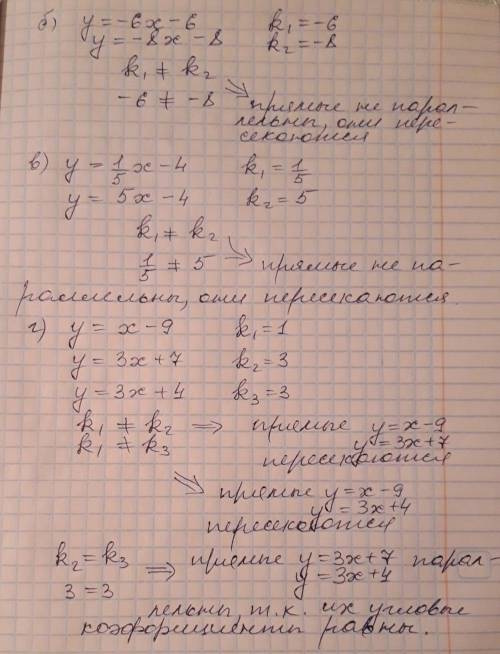 б) y = -6x - 6 k₁ = -6
y = -8x - 8 k₂ = -8
k₁ ≠ k₂
-6 ≠ -8 ⇒ прямые не парал-
лельны, они пере-
секаются
в) y = 1/5 x - 4 k₁ = 1/5
y = 5x - 4 k₂ = 5
k₁ ≠ k₂
1/5 ≠ 5 ⇒ прямые не па-
раллельны, они пересекаются.
г) y = x - 9 k₁ = 1
y = 3x + 7 k₂ = 3
y = 3x + 4 k₃ = 3
k₁ ≠ k₂ ⇒ прямые y = x - 9
k₁ ≠ k₃ y = 3x + 7
пересекаются
⇒ прямые y = x - 9
y = 3x + 4
пересекаются
k₂ = k₃ ⇒ прямые y = 3x + 7 парал-
3 = 3 y = 3x + 4
лельны, т.к. их угловые
коэффициенты равны.